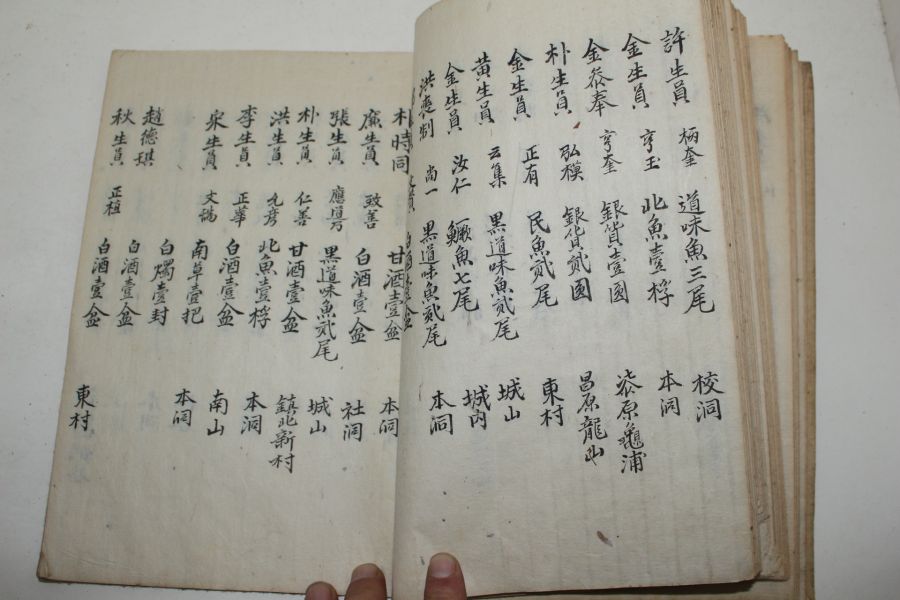 許生員 柄奎 道味魚三尾 校洞
金生員 亨玉 北魚壹桴 本洞
金參奉 亨奎 銀貨壹圓 柒原龜浦
朴生員 弘模 銀貨貳圓 昌原龍山
金生員 正有 民魚貳尾 東村
黄生員 云集 黑道味魚貳尾 城山
金生員 汝仁 鱖魚七尾 城内
洪喪制 尚一 黑道味魚貳尾 本洞
朴時同 甘酒壹盆 本洞
廣生員 致善 白酒壹盆 社洞
張生員 應 黑道味魚貳尾 城山
朴生員 仁善 甘酒壹盆 鎮北新村
洪生員 允彦 北魚壹桴 本洞
李生員 正華 白酒壹盆 南山
宋生員 文 南草壹把 本洞
白燭壹封
趙德琪 白酒壹盆
秋生員 正植 白酒壹盆 東村